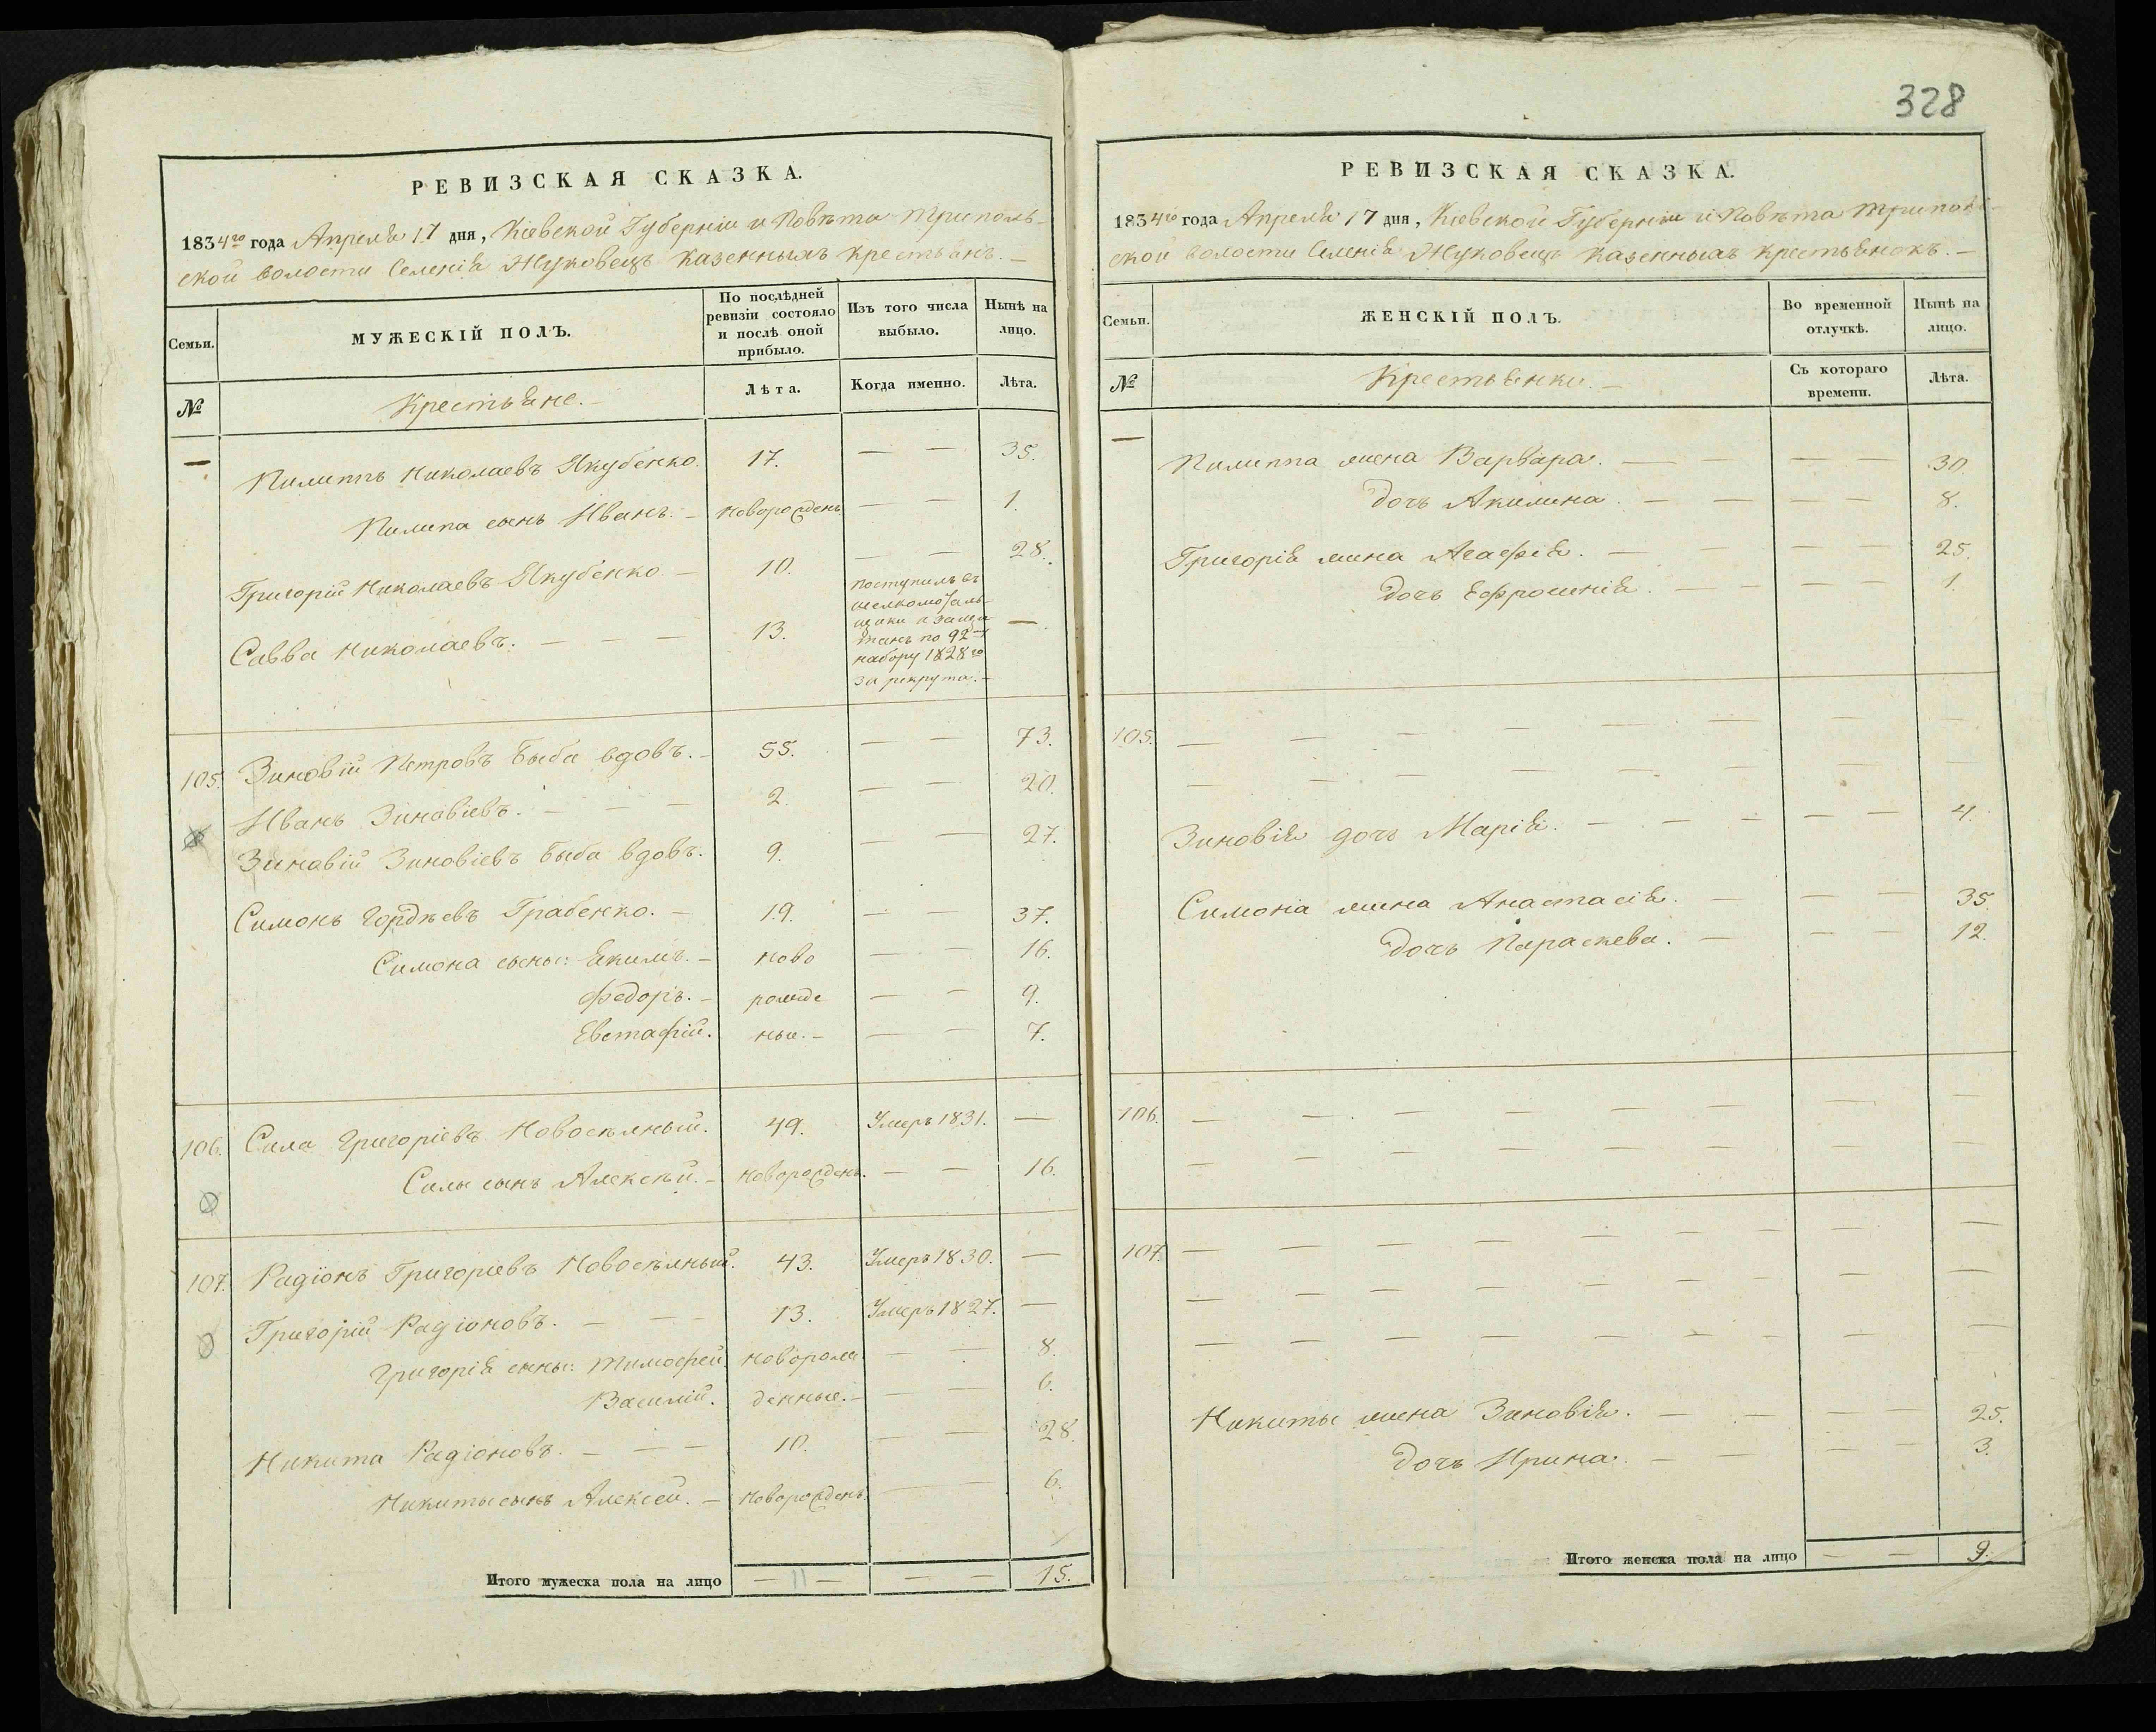 328
РЕВИЗСКАЯ СКАЗКА.
1834го года Апреля 17 дня, Кіевской Губерніи и Повѣта Триполь-
ской волости Селенія Жуковецъ Казенныхъ крестьянъ. —
Семьи.
МУЖЕСКІЙ ПОЛЪ.
По послѣдней ревизіи состояло и послѣ оной прибыло.
Изъ того числа выбыло.
Нынѣ на лицо.
№
Крестьяне. —
Лѣта.
Когда именно.
Лѣта.
— Пилиппъ Николаевъ Якубенко. 17. — — 35.
Пилипа сынъ Иванъ. — новорожденъ — — 1.
Григорій Николаевъ Якубенко. — 10. — — 28.
Савва Николаевъ. — — — 13. —
поступилъ въ
шелкомоталь-
щики и защи
танъ по 92му
набору 1828го
за рекрута. —
105. Зиновій Петровъ Быба вдовъ. — 55. — — 73.
Иванъ Зиновіевъ. — — — 2. — — 20.
Зиновій Зиновіевъ Быба вдовъ. 9. — — 27.
Симонъ Гордѣевъ Грабенко. — 19. — — 37.
Симона сыны: Екимъ. — ново — — 16.
Федоръ. — рожде — — 9.
Евстафій. ные. — — — 7.
106. Сила Григоріевъ Новосѣлный. 49. Умеръ 1831. —
Силы сынъ Алексѣй. — новорожденъ. — — 16.
107. Радіонъ Григоріевъ Новосѣлный. 43. Умеръ 1830. —
Григорій Радіоновъ. — — — 13. Умеръ 1827. —
Григорія сыны: Тимофей. новорож — — 8.
Василій. денные. — — — 6.
Никита Радіоновъ. — — — 10. — — 28.
Никиты сынъ Алексей. — новорожденъ. — — 6.
Итого мужеска пола на лицо — 11 — — — 15.
РЕВИЗСКАЯ СКАЗКА.
1834го года Апреля 17 дня, Кіевской Губерніи и Повѣта Триполь-
ской волости Селенія Жуковецъ Казенныхъ крестьянокъ. —
Семьи.
ЖЕНСКІЙ ПОЛЪ.
Во временной отлучкѣ.
Нынѣ на лицо.
№
Крестьянки. —
Съ котораго времени.
Лѣта.
— Пилиппа жена Варвара. — — — — 30
дочь Акилина. — — — — 8.
Григорія жена Агафія. — — — — 25.
дочь Ефросинія. — — — — 1.
105. — — — — — — — — —
— — — — — — — — —
Зиновія дочь Марія. — — — — — 4.
Симона жена Анастасія. — — — 35.
дочь Параскева. — — — 12.
106. — — — — — — — — —
— — — — — — — — —
107. — — — — — — — — —
— — — — — — — — —
— — — — — — — — —
Никиты жена Зиновія. — — — — 25.
дочь Ирина. — — — — 3.
Итого женска пола на лицо — — 9.